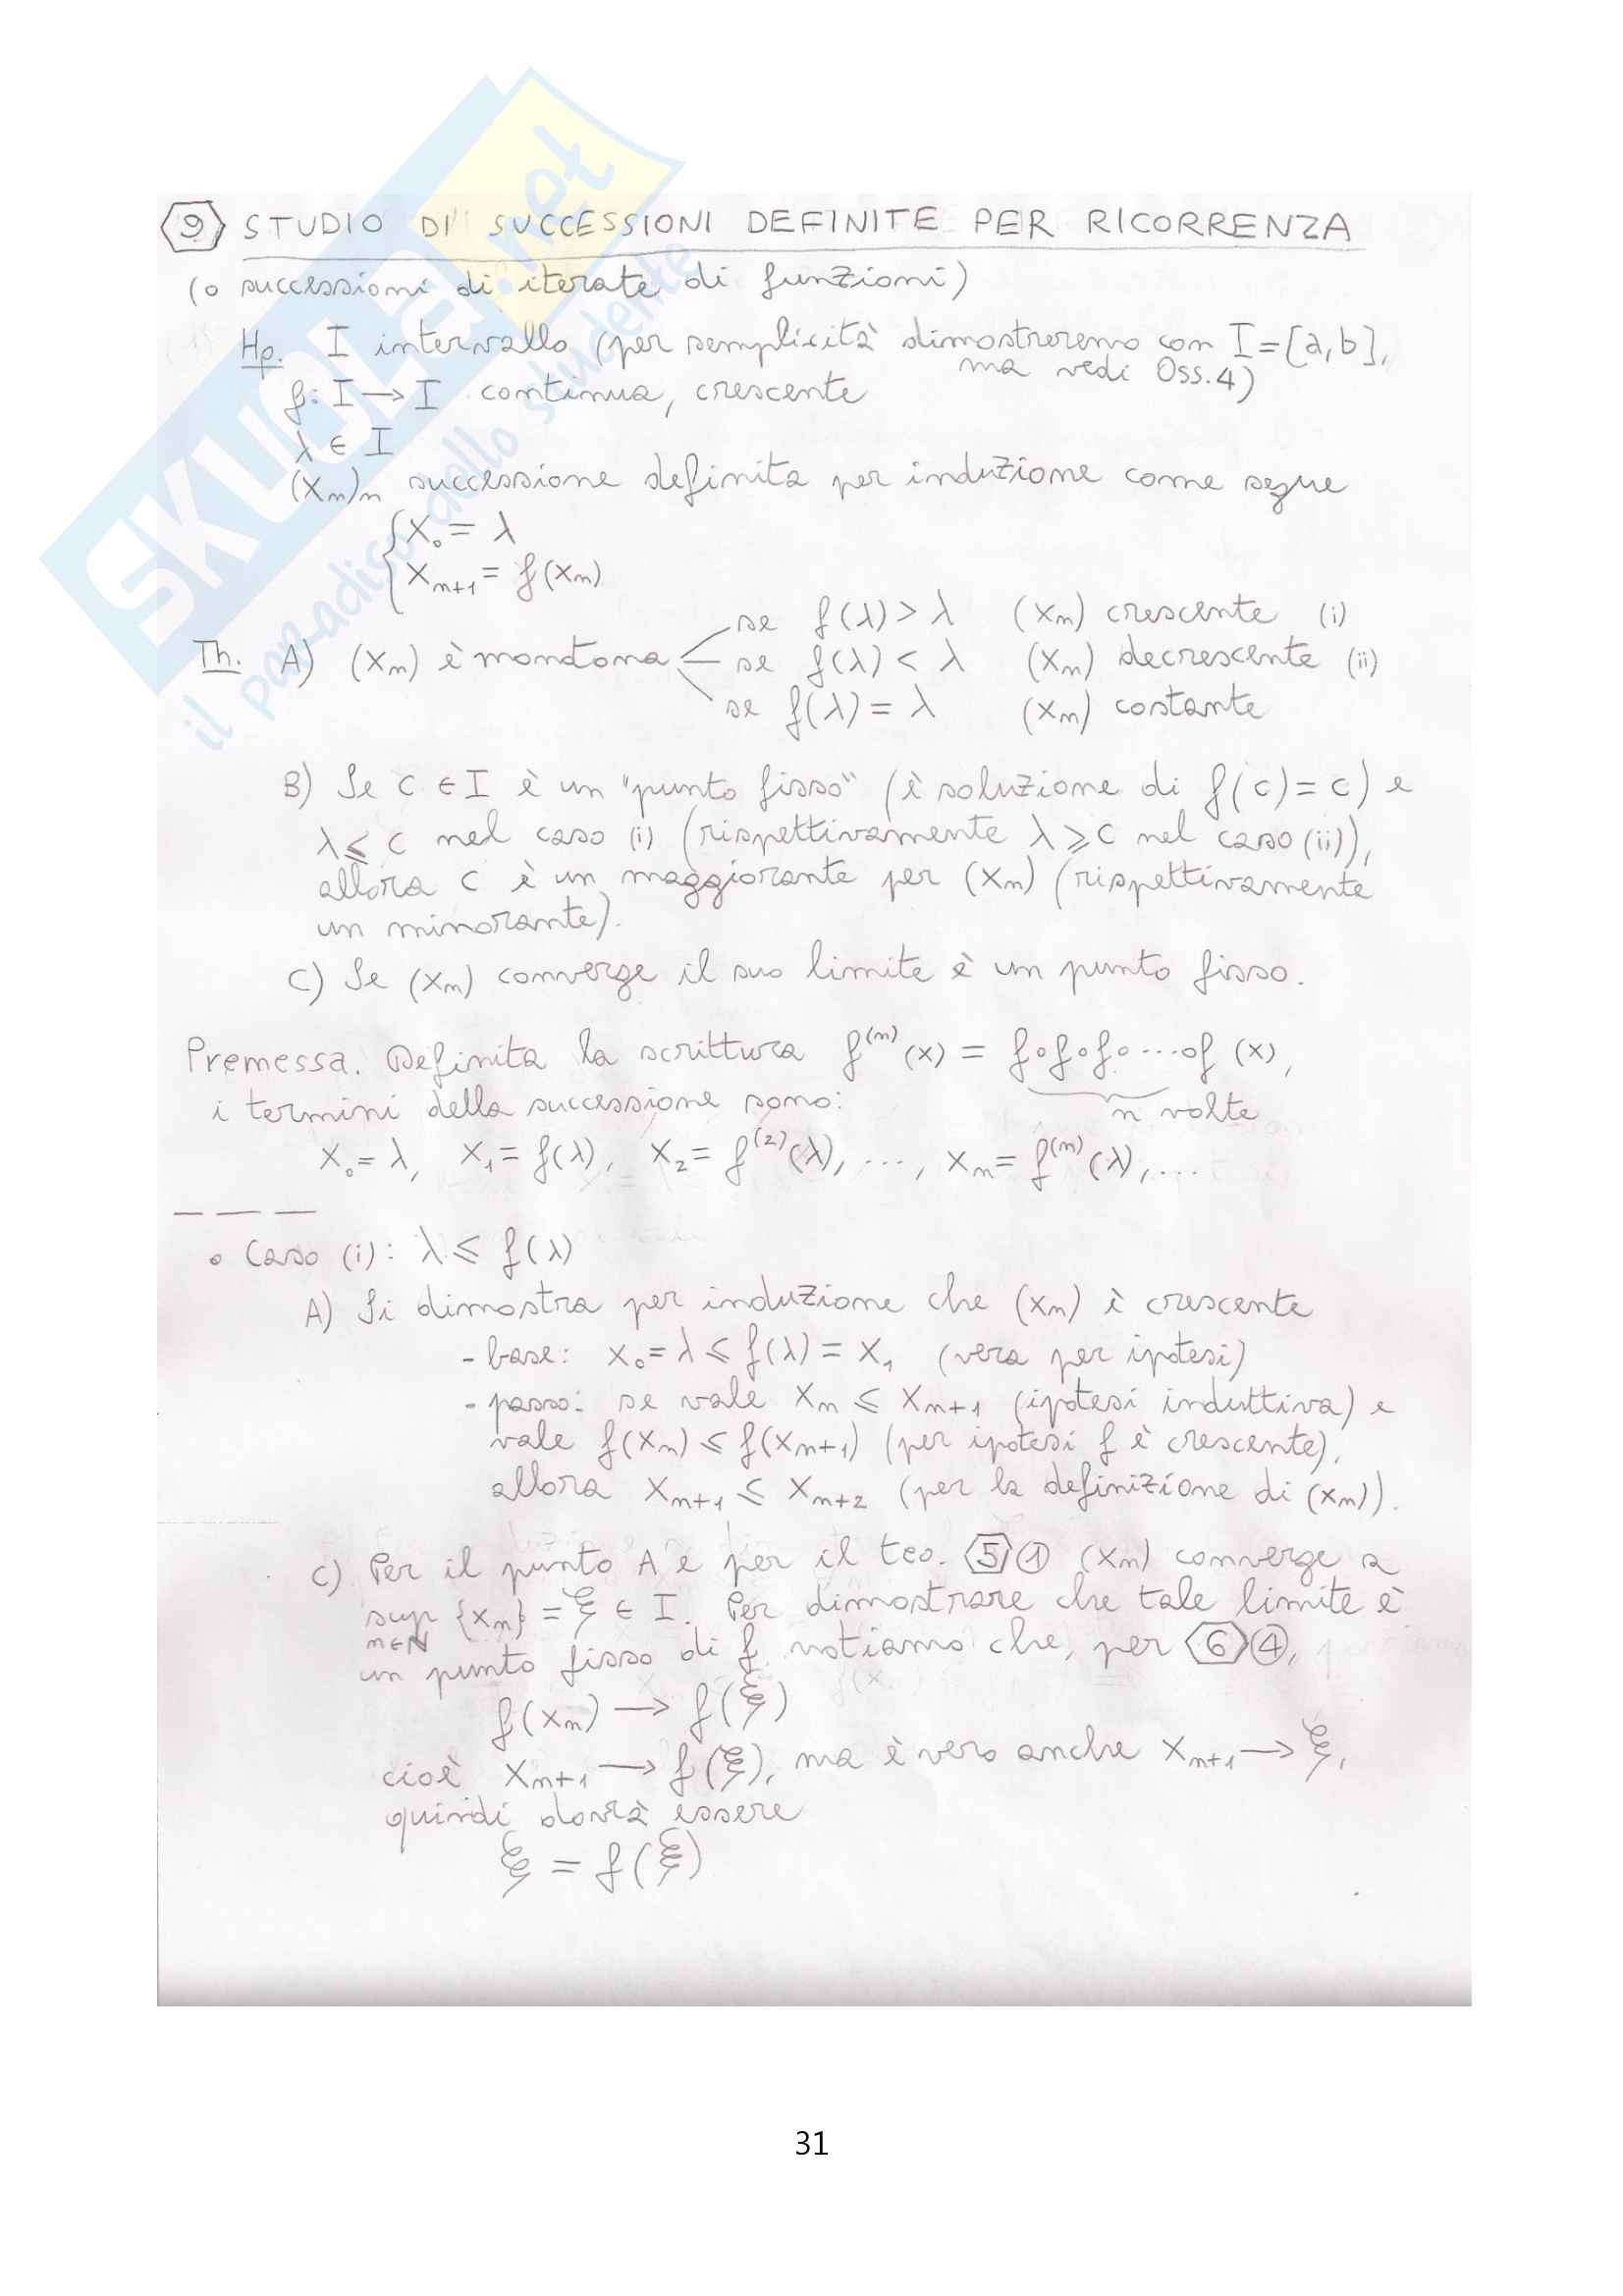 SKUOLA.net
il paradiso dello studente
9 STUDIO DI SUCCESSIONI DEFINITE PER RICORRENZA
(o successioni di iterate di funzioni)
Hp. I intervallo (per semplicità dimostreremo con I=[a,b],
ma vedi Oss.4)
f: I → I continua, crescente
λ ∈ I
(xₙ)ₙ successione definita per induzione come segue
{ x₀ = λ
xₙ₊₁ = f(xₙ)
se f(λ) > λ (xₙ) crescente (i)
Th. A) (xₙ) è monotona se f(λ) < λ (xₙ) decrescente (ii)
se f(λ) = λ (xₙ) costante
B) Se c ∈ I è un "punto fisso" (è soluzione di f(c)=c) e
λ ⩽ c nel caso (i) (rispettivamente λ ⩾ c nel caso (ii)),
allora c è un maggiorante per (xₙ) (rispettivamente
un minorante).
C) Se (xₙ) converge il suo limite è un punto fisso.
Premessa. Definita la scrittura f⁽ⁿ⁾(x) = f∘f∘f∘...∘f (x),
n volte
i termini della successione sono:
x₀ = λ, x₁ = f(λ), x₂ = f⁽²⁾(λ), ..., xₙ = f⁽ⁿ⁾(λ), ...
– – –
• Caso (i): λ ⩽ f(λ)
A) Si dimostra per induzione che (xₙ) è crescente
- base: x₀ = λ ⩽ f(λ) = x₁ (vera per ipotesi)
- passo: se vale xₙ ⩽ xₙ₊₁ (ipotesi induttiva) e
vale f(xₙ) ⩽ f(xₙ₊₁) (per ipotesi f è crescente),
allora xₙ₊₁ ⩽ xₙ₊₂ (per la definizione di (xₙ)).
C) Per il punto A e per il teo. 5 1 (xₙ) converge a
sup {xₙ} = ξ ∈ I. Per dimostrare che tale limite è
n∈N
un punto fisso di f notiamo che, per 6 4,
f(xₙ) → f(ξ)
cioè xₙ₊₁ → f(ξ), ma è vero anche xₙ₊₁ → ξ,
quindi dovrà essere
ξ = f(ξ)
31